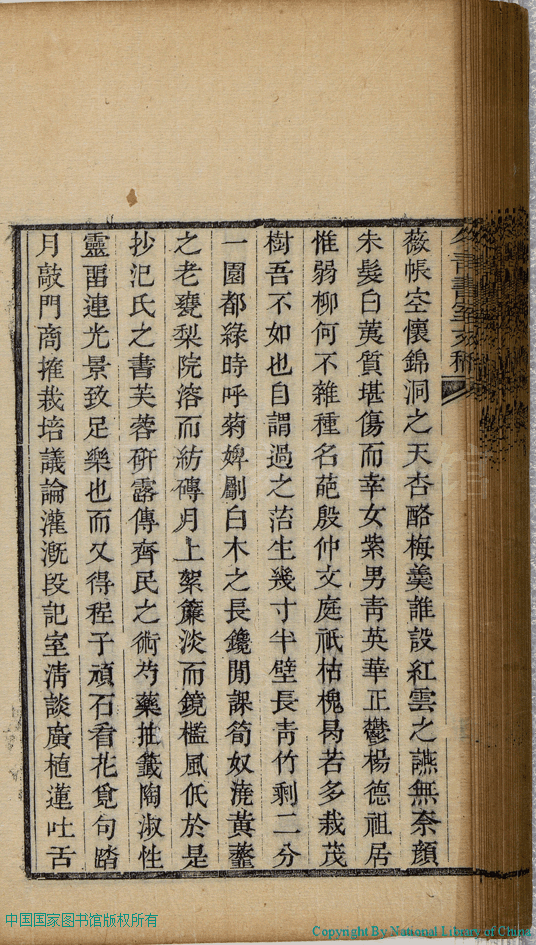 薇帳空懷錦洞之天杏酪梅羹誰設紅雲之讌無奈顏
朱髮白荑質堪傷而幸女紫男靑英華正鬱楊德祖居
惟弱柳何不雜種名葩殷仲文庭祇枯槐曷若多栽茂
樹吾不如也自謂過之萿生幾寸半壁長靑竹剩二分
一園都綠時呼菊婢劚白木之長鑱閒課筍奴澆黃虀
之老甕梨院溶而紡磚月上絮簾淡而鏡檻風低於是
抄氾氏之書芙蓉硏露傳齊民之術芍藥抽籤陶淑性
靈畱連光景致足樂也而又得程子頑石看花覓句踏
月敲門商搉栽培議論灌漑段記室淸談廣植蓮吐舌
中国国家图书馆版权所有
Copyright By National Library of China